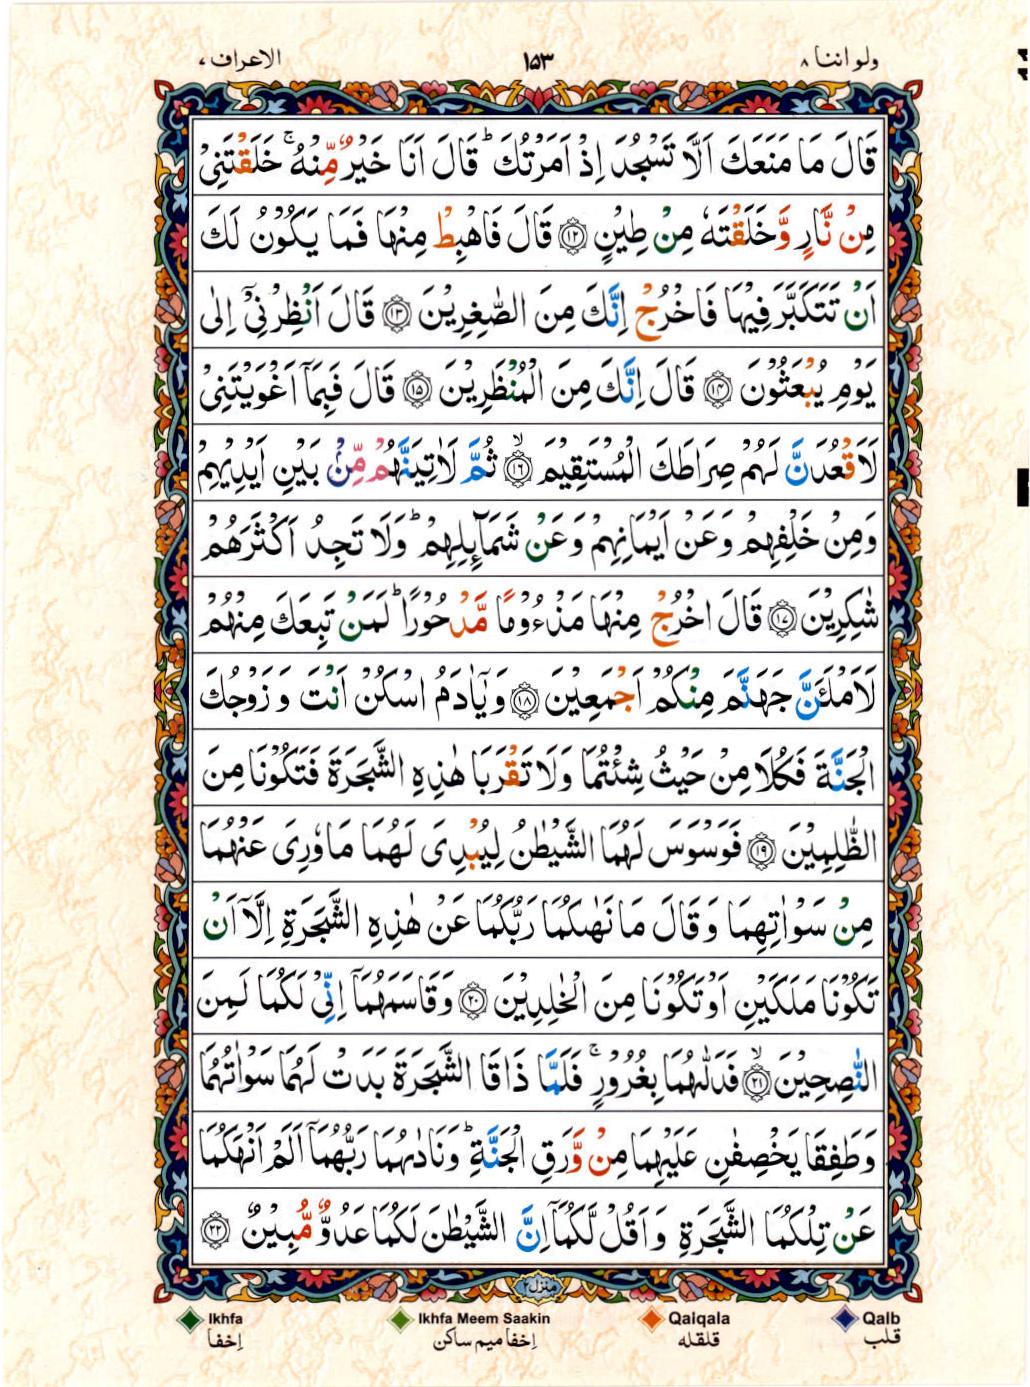 ولو اننا ۸ ۱۵۳ الاعراف ۷
قَالَ مَا مَنَعَكَ اَلَّا تَسْجُدَ اِذْ اَمَرْتُكَ ؕ قَالَ اَنَا خَيْرٌ مِّنْهُ ۚ خَلَقْتَنِيْ
مِنْ نَّارٍ وَّخَلَقْتَهٗ مِنْ طِيْنٍ ﴿۱۲﴾ قَالَ فَاهْبِطْ مِنْهَا فَمَا يَكُوْنُ لَكَ
اَنْ تَتَكَبَّرَ فِيْهَا فَاخْرُجْ اِنَّكَ مِنَ الصّٰغِرِيْنَ ﴿۱۳﴾ قَالَ اَنْظِرْنِيْۤ اِلٰى
يَوْمِ يُبْعَثُوْنَ ﴿۱۴﴾ قَالَ اِنَّكَ مِنَ الْمُنْظَرِيْنَ ﴿۱۵﴾ قَالَ فَبِمَاۤ اَغْوَيْتَنِيْ
لَاَقْعُدَنَّ لَهُمْ صِرَاطَكَ الْمُسْتَقِيْمَ ﴿۱۶﴾ۙ ثُمَّ لَاٰتِيَنَّهُمْ مِّنْۢ بَيْنِ اَيْدِيْهِمْ
وَمِنْ خَلْفِهِمْ وَعَنْ اَيْمَانِهِمْ وَعَنْ شَمَآئِلِهِمْ ؕ وَلَا تَجِدُ اَكْثَرَهُمْ
شٰكِرِيْنَ ﴿۱۷﴾ قَالَ اخْرُجْ مِنْهَا مَذْءُوْمًا مَّدْحُوْرًا ؕ لَمَنْ تَبِعَكَ مِنْهُمْ
لَاَمْلَئَنَّ جَهَنَّمَ مِنْكُمْ اَجْمَعِيْنَ ﴿۱۸﴾ وَيٰۤاٰدَمُ اسْكُنْ اَنْتَ وَزَوْجُكَ
الْجَنَّةَ فَكُلَا مِنْ حَيْثُ شِئْتُمَا وَلَا تَقْرَبَا هٰذِهِ الشَّجَرَةَ فَتَكُوْنَا مِنَ
الظّٰلِمِيْنَ ﴿۱۹﴾ فَوَسْوَسَ لَهُمَا الشَّيْطٰنُ لِيُبْدِيَ لَهُمَا مَا وٗرِيَ عَنْهُمَا
مِنْ سَوْاٰتِهِمَا وَقَالَ مَا نَهٰىكُمَا رَبُّكُمَا عَنْ هٰذِهِ الشَّجَرَةِ اِلَّاۤ اَنْ
تَكُوْنَا مَلَكَيْنِ اَوْ تَكُوْنَا مِنَ الْخٰلِدِيْنَ ﴿۲۰﴾ وَقَاسَمَهُمَاۤ اِنِّيْ لَكُمَا لَمِنَ
النّٰصِحِيْنَ ﴿۲۱﴾ۙ فَدَلّٰىهُمَا بِغُرُوْرٍ ۚ فَلَمَّا ذَاقَا الشَّجَرَةَ بَدَتْ لَهُمَا سَوْاٰتُهُمَا
وَطَفِقَا يَخْصِفٰنِ عَلَيْهِمَا مِنْ وَّرَقِ الْجَنَّةِ ؕ وَنَادٰىهُمَا رَبُّهُمَاۤ اَلَمْ اَنْهَكُمَا
عَنْ تِلْكُمَا الشَّجَرَةِ وَاَقُلْ لَّكُمَاۤ اِنَّ الشَّيْطٰنَ لَكُمَا عَدُوٌّ مُّبِيْنٌ ﴿۲۲﴾
منزل ۲
Ikhfa Ikhfa Meem Saakin Qalqala Qalb
اِخفا اِخفا میم ساکن قلقله قلب